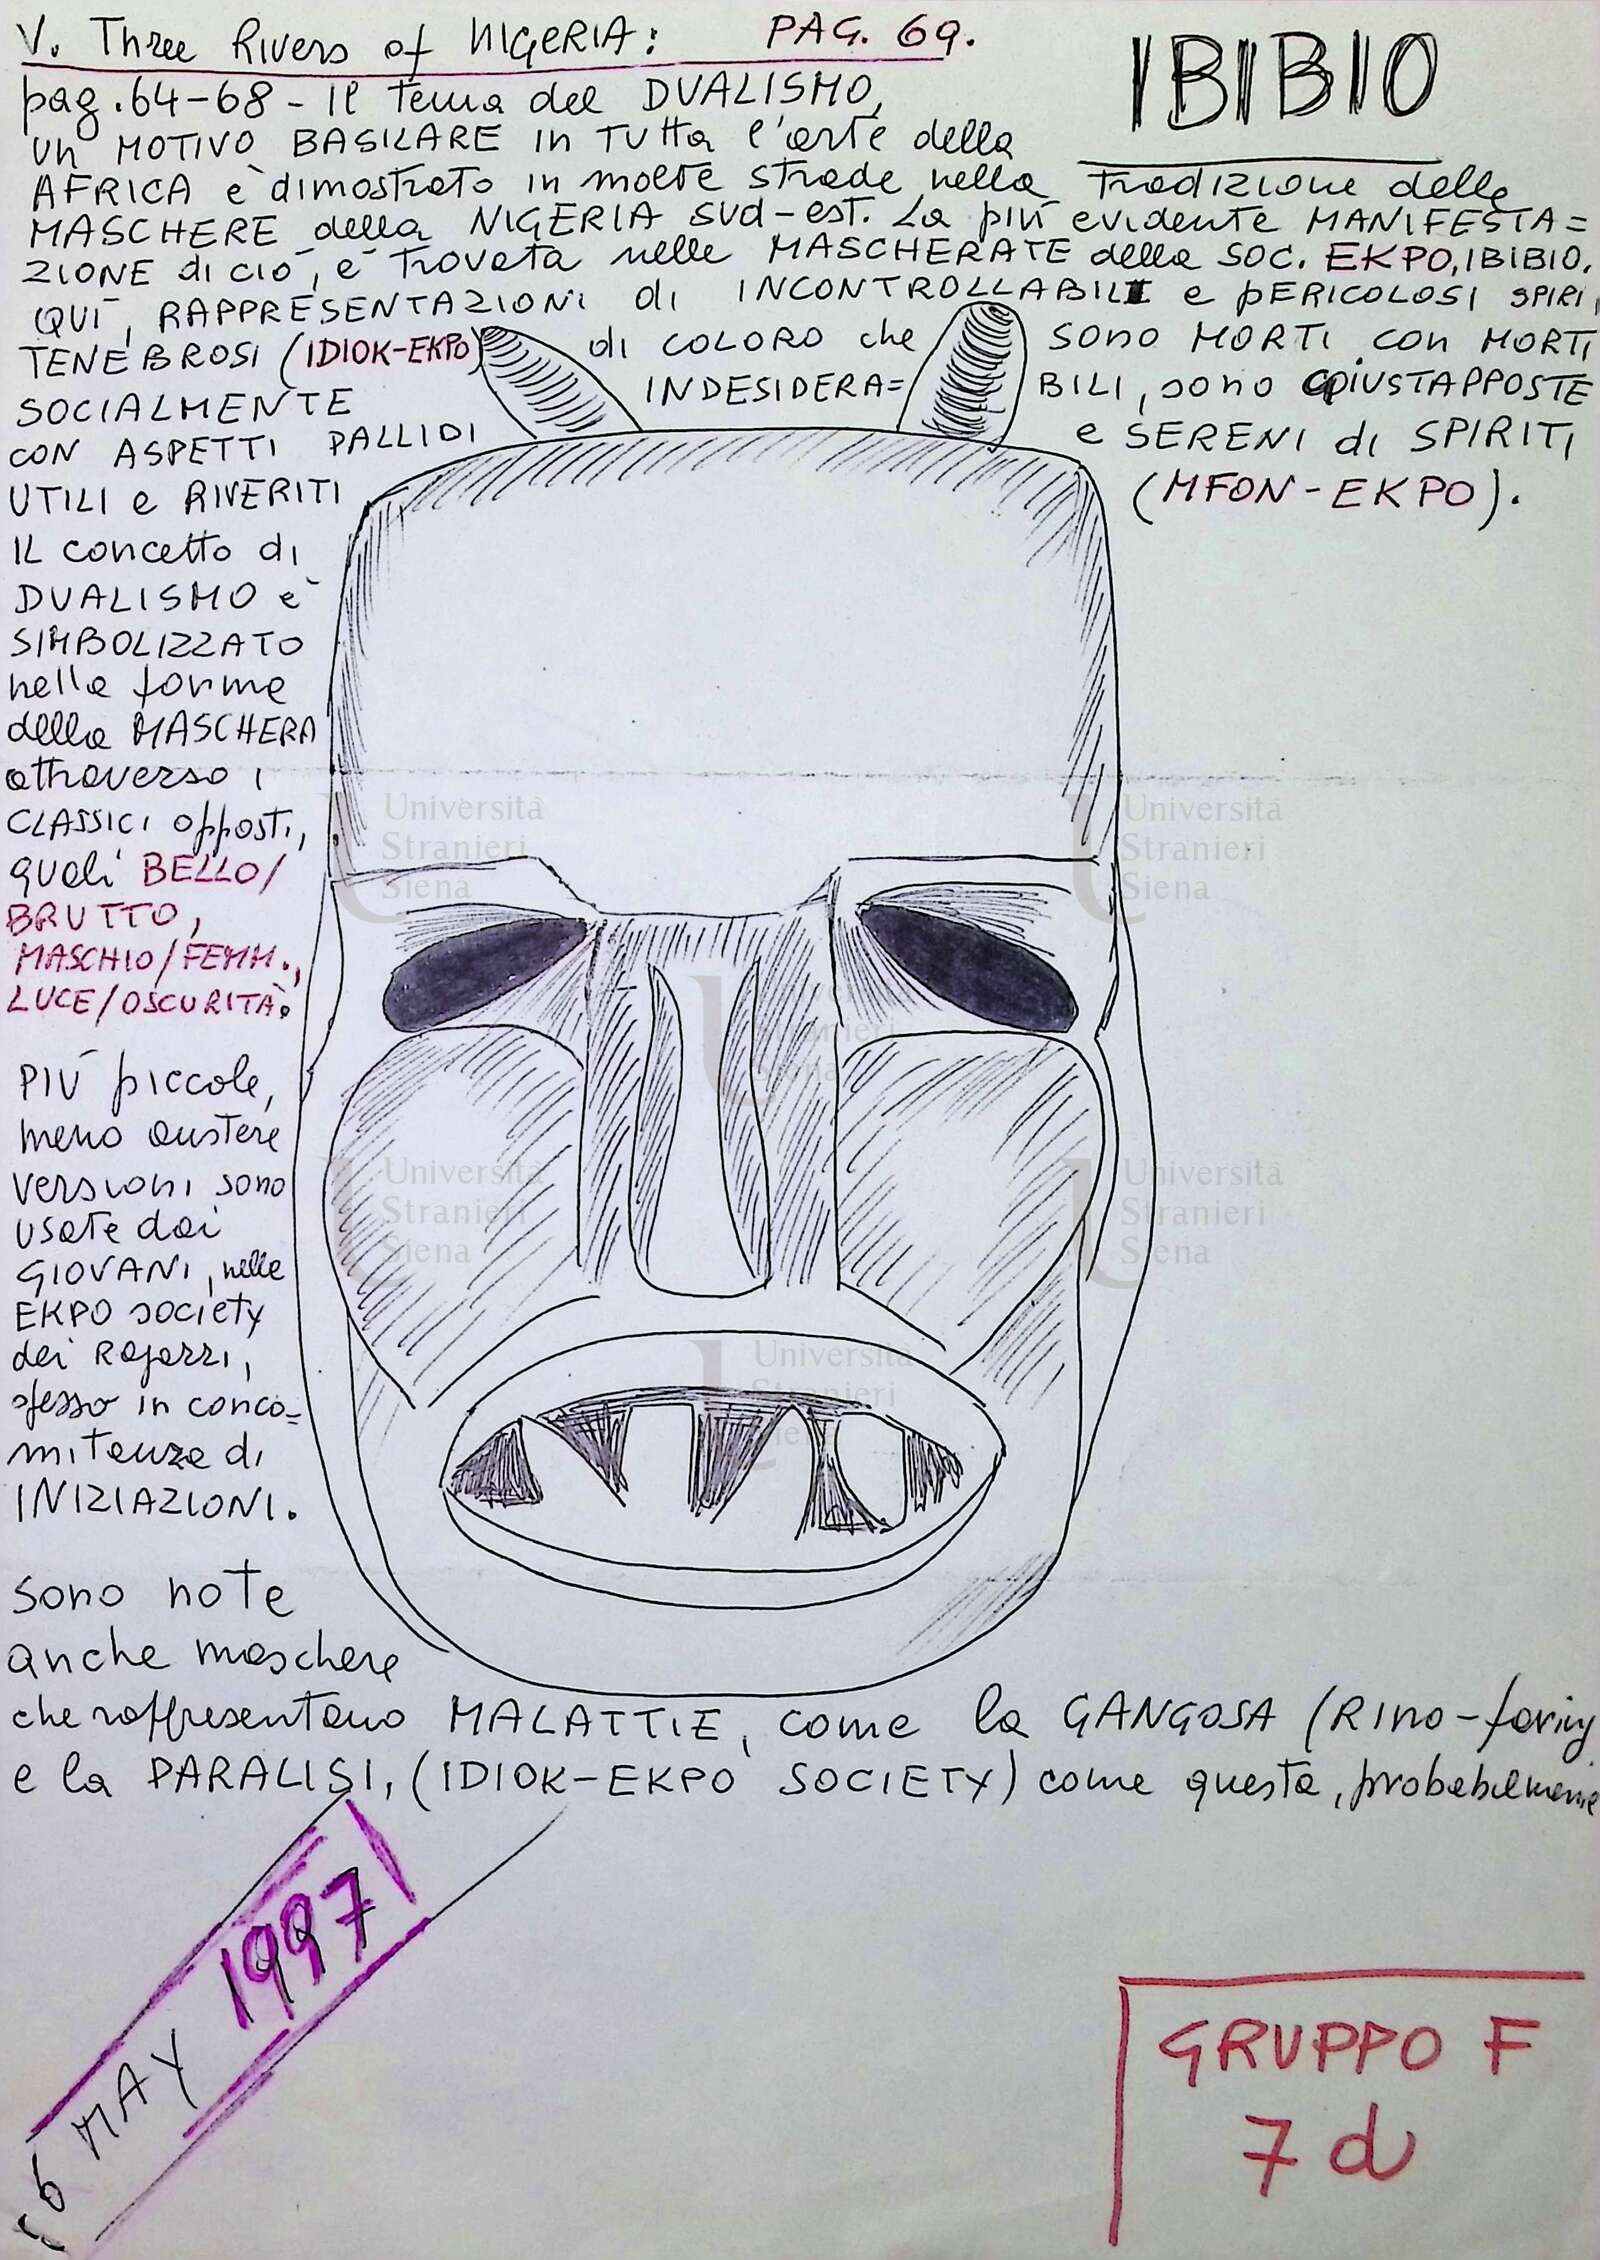 V. Three Rivers of NIGERIA: PAG. 69.
IBIBIO
pag. 64-68 - Il tema del DUALISMO,
un MOTIVO BASILARE in TUTTA l'arte della
AFRICA è dimostrato in molte strade nella Tradizione delle
MASCHERE della NIGERIA SUD-est. La più evidente MANIFESTA=
ZIONE di ciò, è trovata nelle MASCHERATE della SOC. EKPO, IBIBIO.
QUÌ, RAPPRESENTAZIONI di INCONTROLLABILI e PERICOLOSI SPIRI,
TENEBROSI (IDIOK-EKPO) di COLORO che SONO MORTI con MORTI
SOCIALMENTE INDESIDERA= BILI, sono GIUSTAPPOSTE
CON ASPETTI PALLIDI e SERENI di SPIRITI
UTILI e RIVERITI (MFON-EKPO).
IL concetto di
DUALISMO è
SIMBOLIZZATO
nelle forme
della MASCHERA
attraverso i
CLASSICI opposti,
quali BELLO/
BRUTTO,
MASCHIO/FEMM.,
LUCE/OSCURITÀ.
PIÙ piccole,
meno austere
versioni sono
usate dai
GIOVANI, nelle
EKPO society
dei Ragazzi,
spesso in conco=
mitenza di
INIZIAZIONI.
Sono note
anche maschere
che rappresentano MALATTIE, come la GANGOSA (RINO-faring
e la PARALISI, (IDIOK-EKPO SOCIETY) come questa, probabilmente
6 MAY 1997
GRUPPO F
7 d
Università
Stranieri
Siena
Università
Stranieri
Siena
Università
Stranieri
Siena
Università
Stranieri
Siena
Università
Stranieri
Siena
Università
Stranieri
Siena